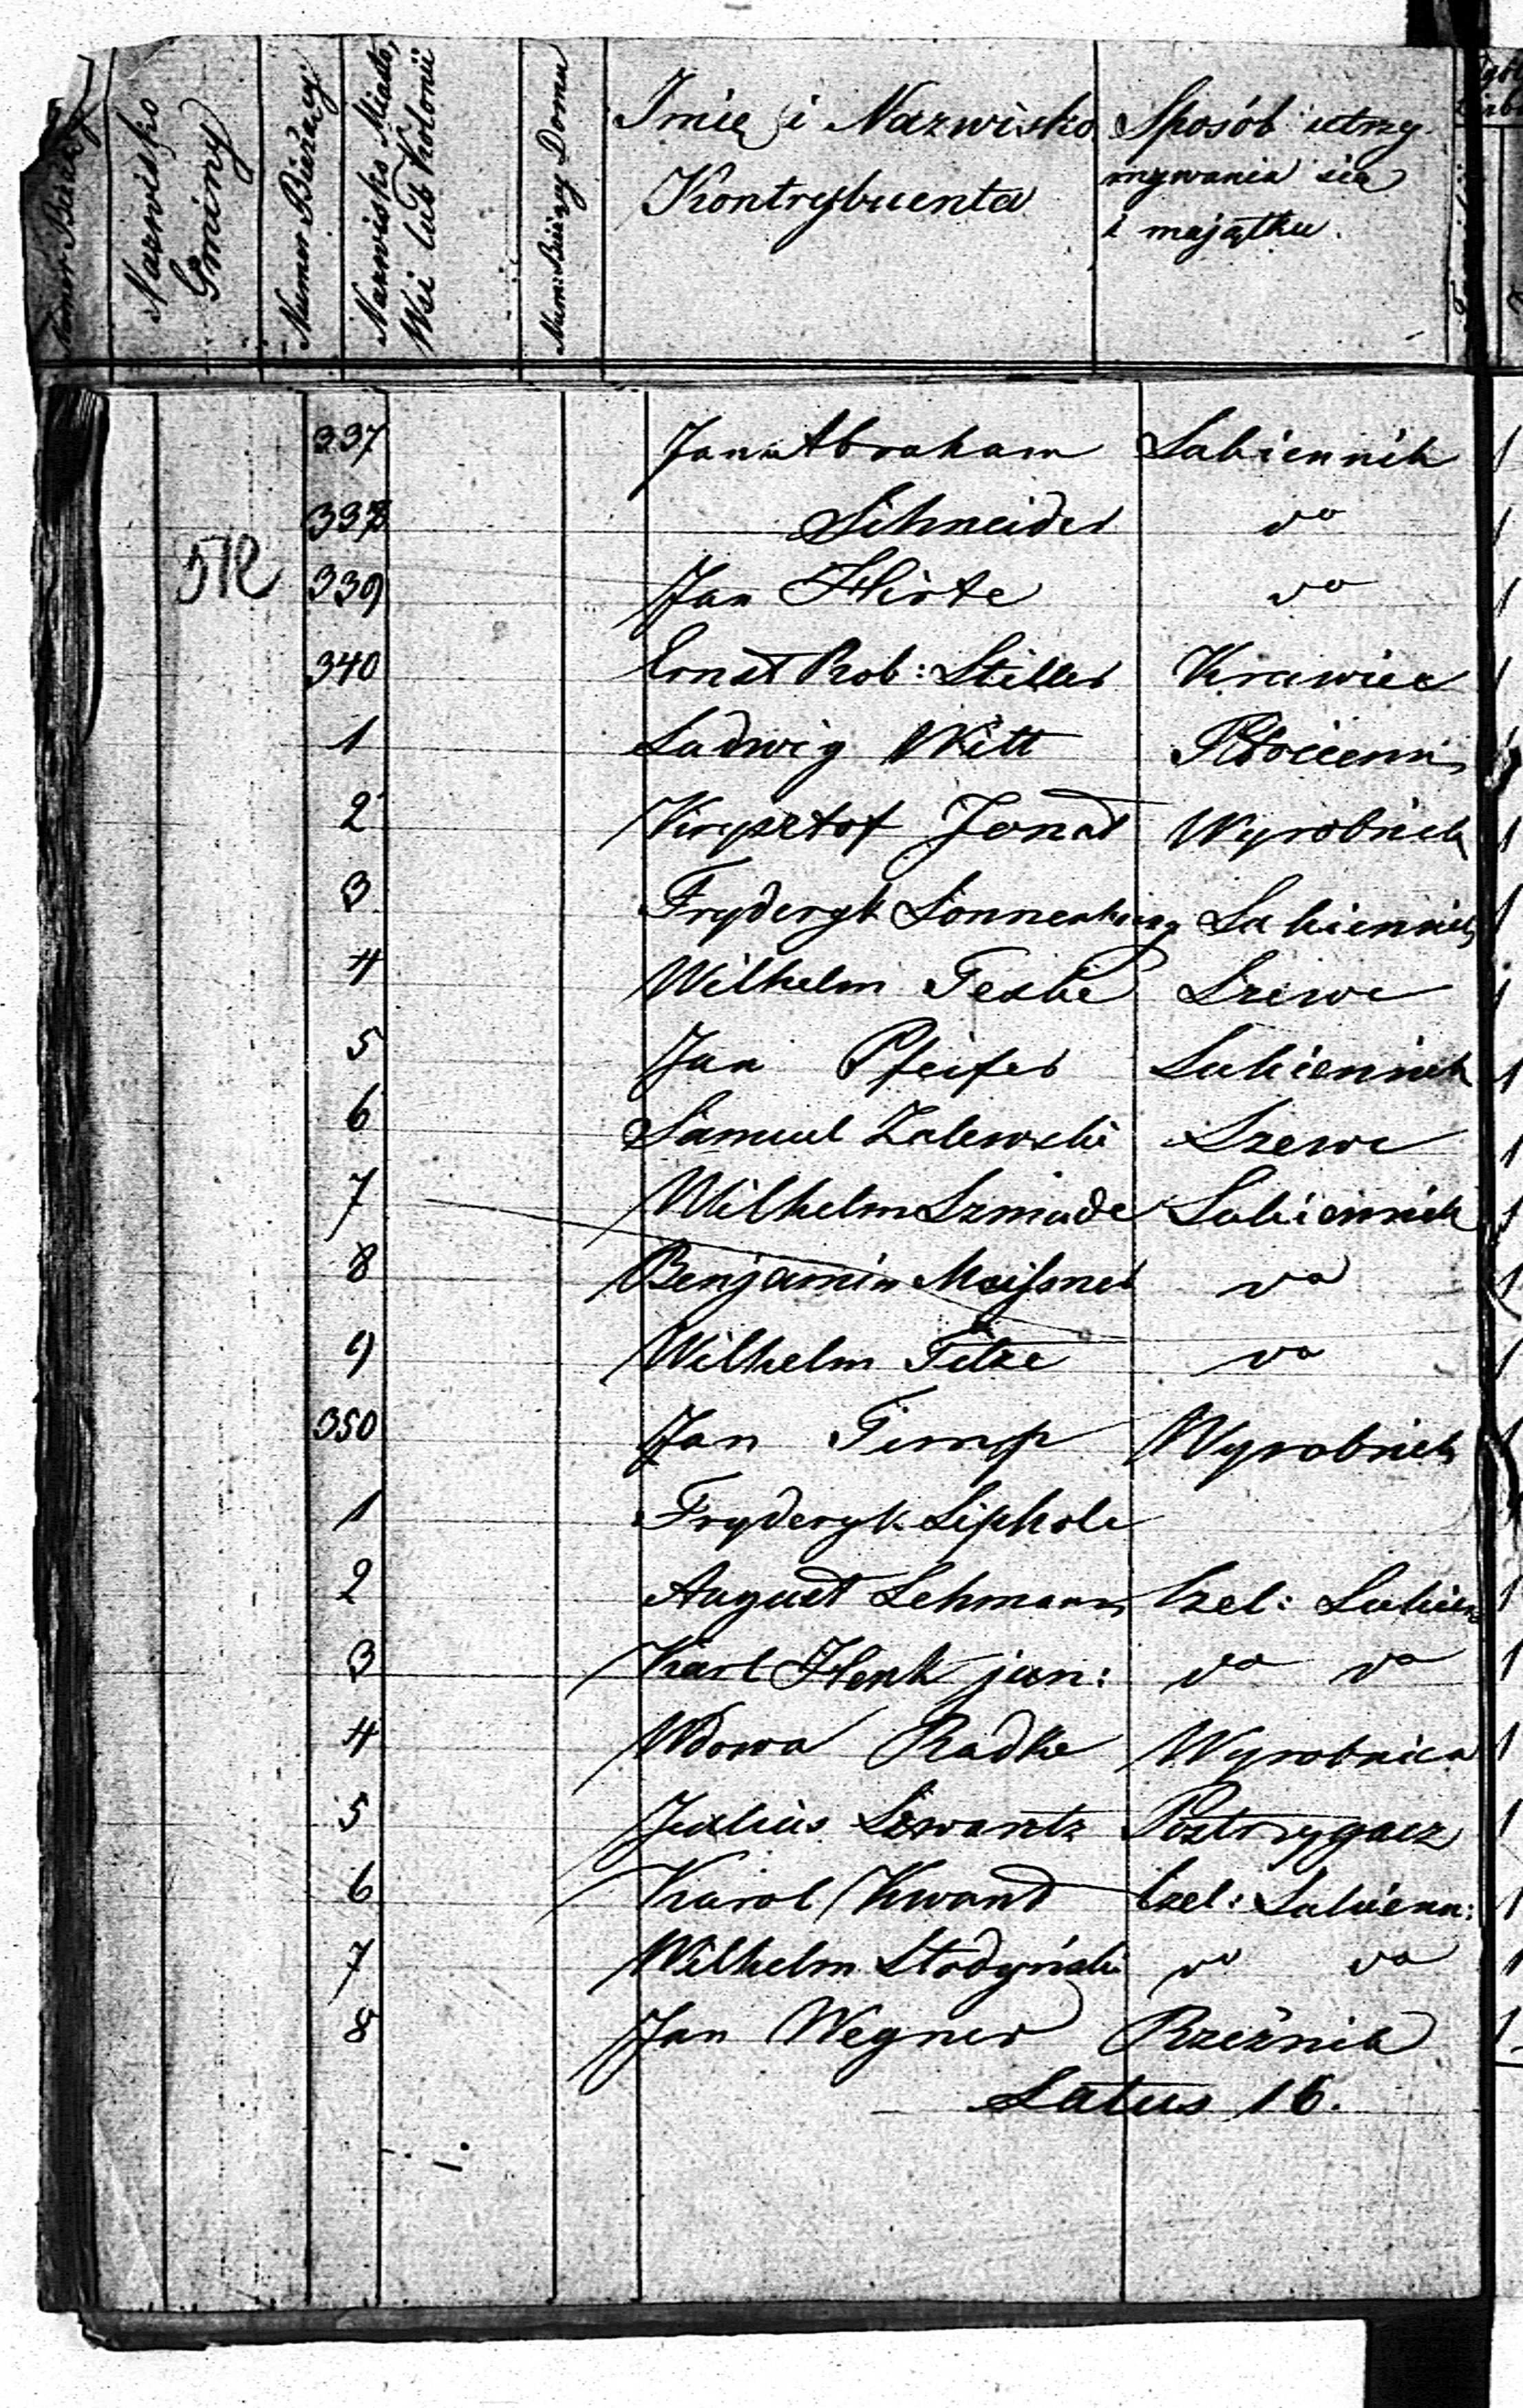 Numer Bieżący
Nazwisko Gminy
Numer Bieżący
Nazwisko Miasta, Wsi lub Kolonii
Num: Bieżący Domu
Imię i Nazwisko Kontrybuenta
Sposób utrzymywania się i majątku.
337 Jan Abraham Sukiennik
338 Schneider do
339 Jan Hirte do
340 Ernst Rob: Stiller Krawiec
1 Ludwig Witt
2 Krysztof Jonas Wyrobnik
3 Fryderyk Sonnenburg Sukiennik
4 Wilhelm Teske Szewc
5 Jan Pfeifer Sukiennik
6 Samuel Zalewski Szewc
7 Wilhelm Szmude Sukiennik
8 Benjamin Meißner do
9 Wilhelm Titze do
350 Jan Timp Wyrobnik
1 Fryderyk
2 August Lehmann Czel: Sukien
3 Karl Henk jun: do do
4 Wdowa Radke Wyrobnica
5 Julius Szwartz Postrzygacz
6 Karol Kwand Czel: Sukienn:
7 Wilhelm Stodyński do do
8 Jan Wegner Rzeźnik
Latus 16.